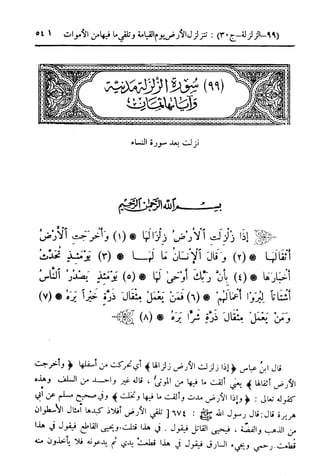 (٩٩- الزلزلة- ج ٣٠) : تتزلزل الأرض يوم القيامة وتلقي ما فيها من الأموات ٥٤١
(٩٩) سورة الزلزلة مدنية
وآياتها ثمان
نزلت بعد سورة النساء
بسم الله الرحمن الرحيم
إِذَا زُلْزِلَتِ الْأَرْضُ زِلْزَالَهَا (١) وَأَخْرَجَتِ الْأَرْضُ
أَثْقَالَهَا (٢) وَقَالَ الْإِنسَانُ مَا لَهَا (٣) يَوْمَئِذٍ تُحَدِّثُ
أَخْبَارَهَا (٤) بِأَنَّ رَبَّكَ أَوْحَى لَهَا (٥) يَوْمَئِذٍ يَصْدُرُ النَّاسُ
أَشْتَاتًا لِيُرَوْا أَعْمَالَهُمْ (٦) فَمَن يَعْمَلْ مِثْقَالَ ذَرَّةٍ خَيْرًا يَرَهُ (٧)
وَمَن يَعْمَلْ مِثْقَالَ ذَرَّةٍ شَرًّا يَرَهُ (٨)
قال ابن عباس ﴿إذا زلزلت الأرض زلزالها﴾ أي تحركت من أسفلها ﴿وأخرجت
الأرض أثقالها﴾ يعني ألقت ما فيها من الموتى، قاله غير واحد من السلف وهذه
كقوله تعالى : ﴿وإذا الأرض مدت وألقت ما فيها وتخلت﴾ وفي صحيح مسلم عن أبي
هريرة قال: قال رسول الله ﷺ : ٦٧٤ [تلقي الأرض أفلاذ كبدها أمثال الأسطوان
من الذهب والفضة، فيجيء القاتل فيقول. في هذا قتلت، ويجيء القاطع فيقول في هذا
قطعت رحمي ويجيء السارق فيقول في هذا قطعت يدي ثم يدعونه فلا يأخذون منه